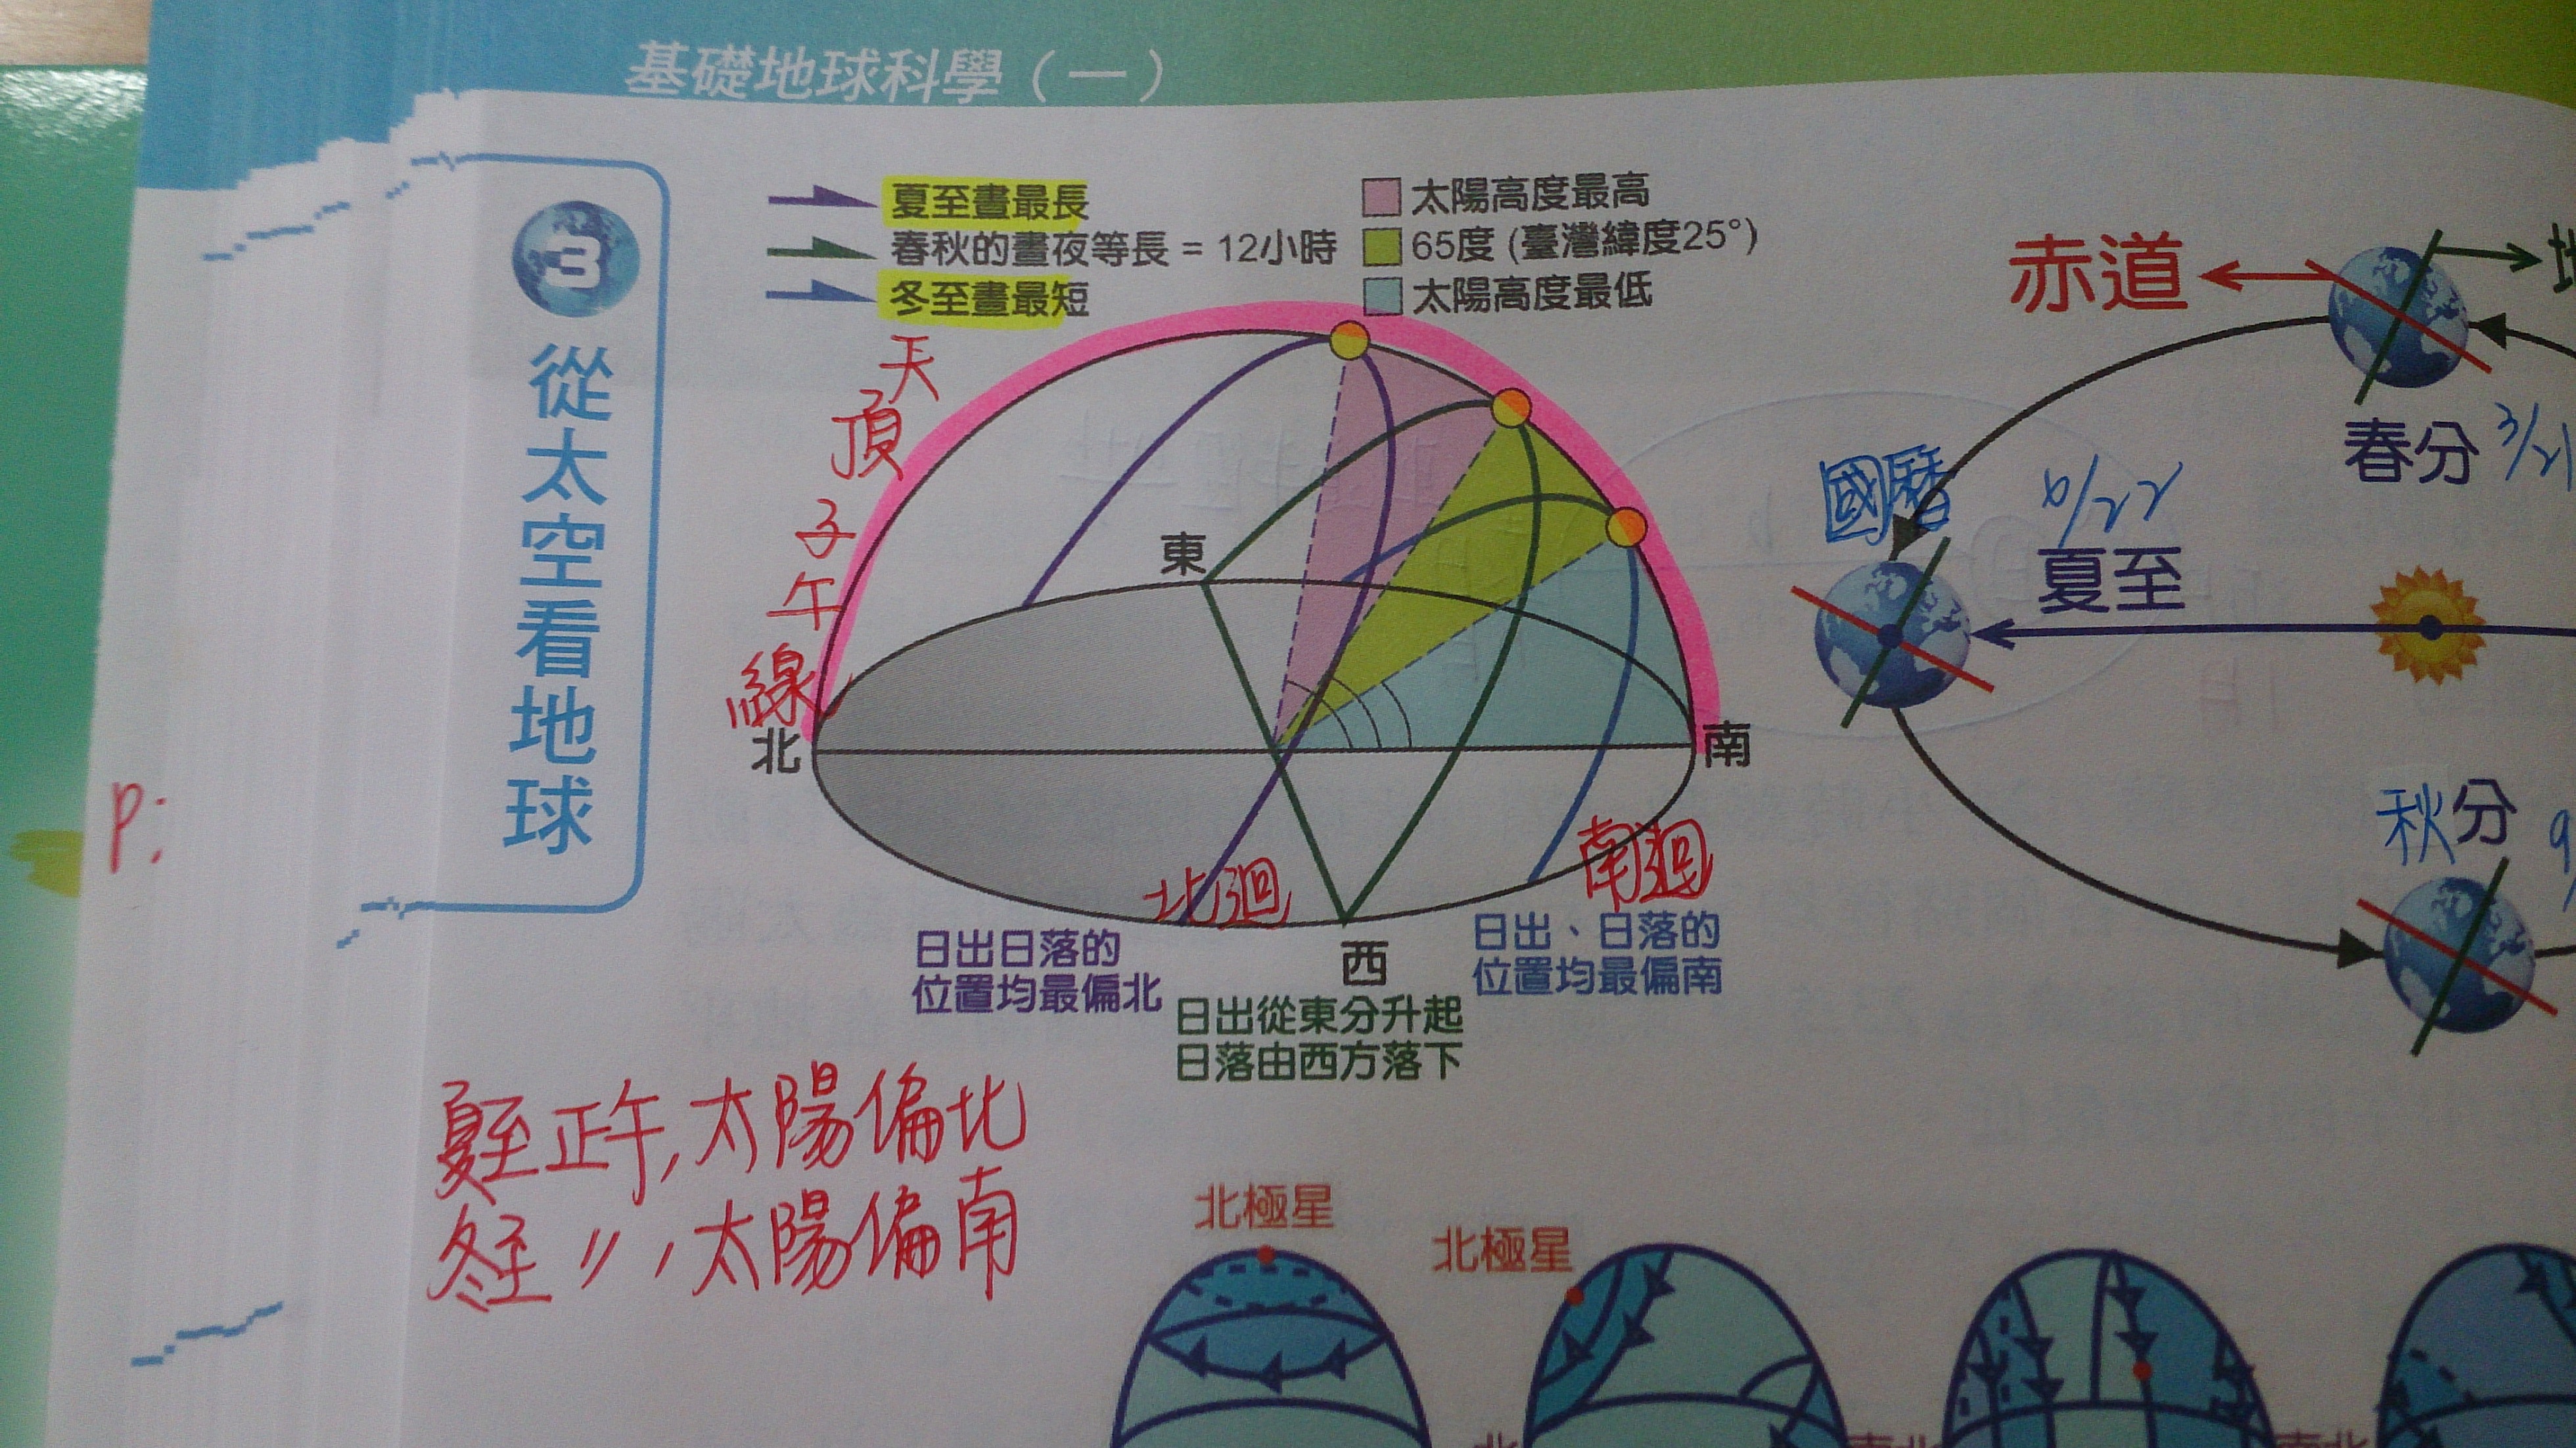 基礎地球科學（一）
3
從太空看地球
夏至晝最長
春秋的晝夜等長 = 12小時
冬至晝最短
太陽高度最高
65度 (臺灣緯度25°)
太陽高度最低
天頂
子午線
東
北
南
西
北迴
南迴
日出日落的
位置均最偏北
日出從東分升起
日落由西方落下
日出、日落的
位置均最偏南
赤道
春分 3/21
國曆
6/22
夏至
秋分
P:
夏至正午,太陽偏北
冬至〃,太陽偏南
北極星
北極星